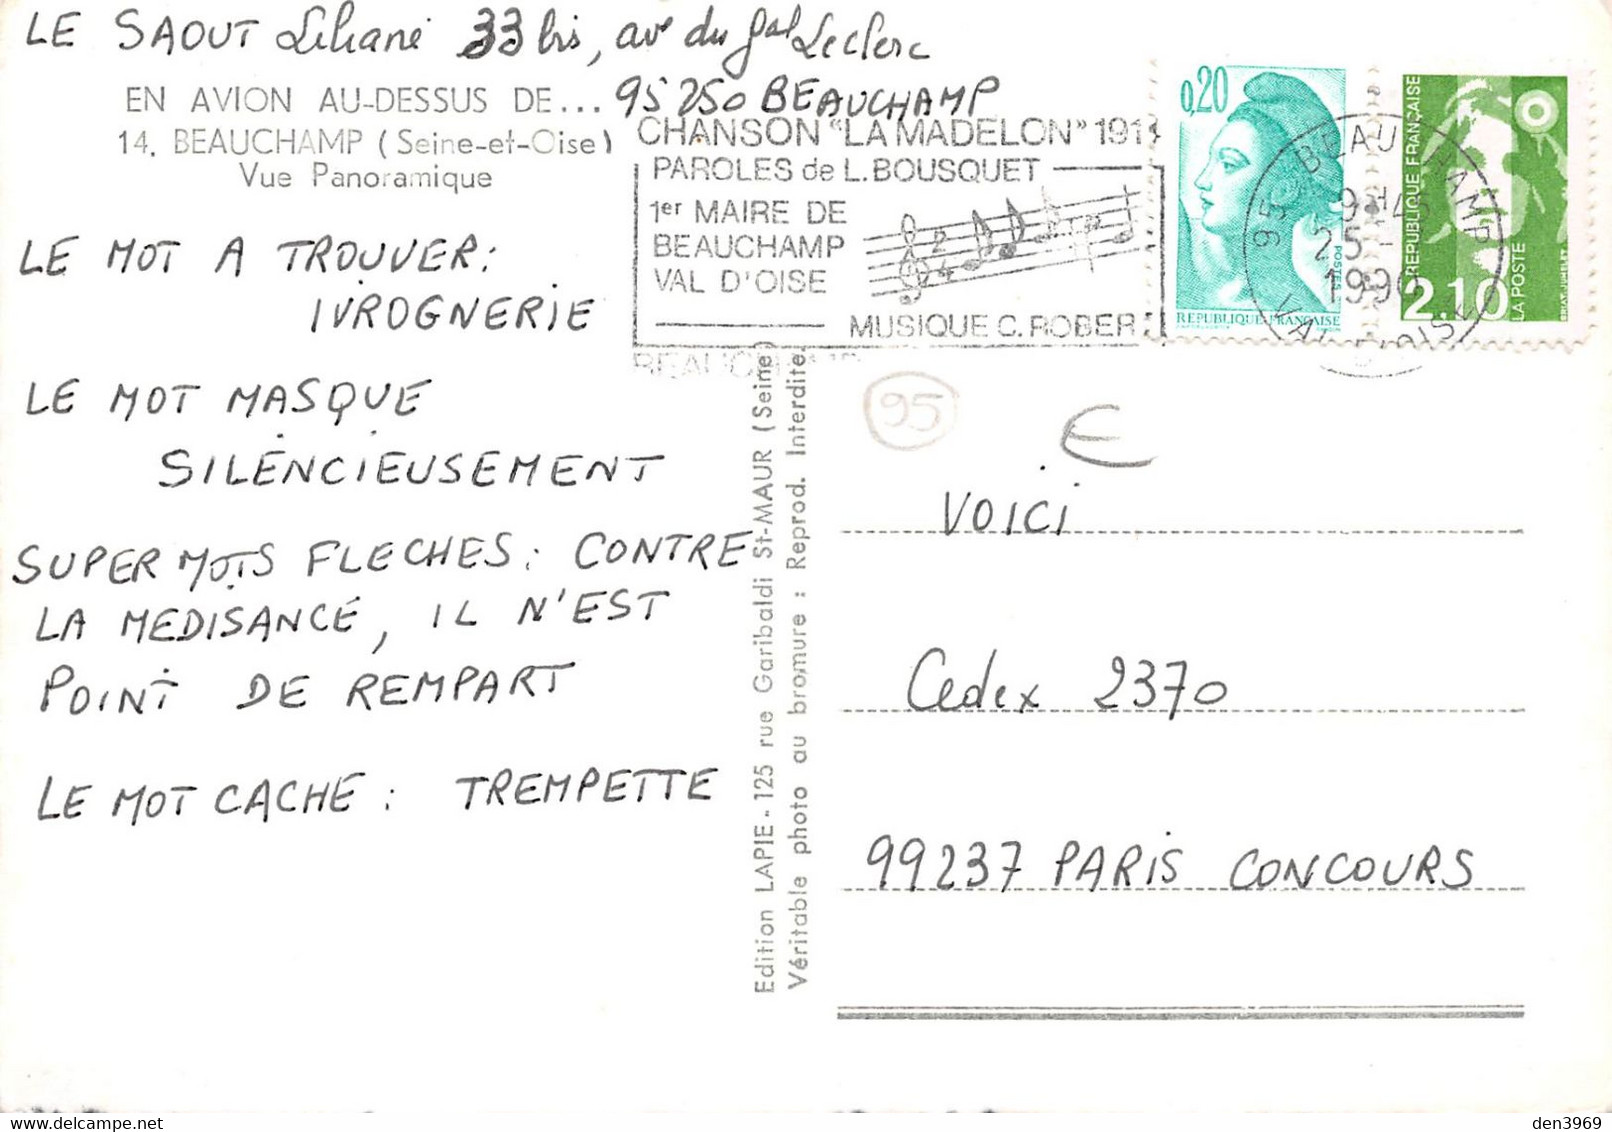 LE SAOUT Liliane 33 bis, av du gal Leclerc
95 250 BEAUCHAMP
EN AVION AU-DESSUS DE...
14. BEAUCHAMP (Seine-et-Oise)
Vue Panoramique
LE MOT A TROUVER:
IVROGNERIE
LE MOT MASQUE
SILENCIEUSEMENT
SUPER MOTS FLECHES: CONTRE
LA MEDISANCE, IL N'EST
POINT DE REMPART
LE MOT CACHE: TREMPETTE
CHANSON "LA MADELON" 191
PAROLES de L. BOUSQUET
1er MAIRE DE
BEAUCHAMP
VAL D'OISE
2
4
MUSIQUE C. ROBER
0,20
POSTES
REPUBLIQUE FRANÇAISE
REPUBLIQUE FRANÇAISE
REPUBLIQUE FRANÇAISE
2.10
LA POSTE
BRIAT. JUMELET
95 BEAUCHAMP
9H45
25 -
1990
VAL D'OISE
Edition LAPIE - 125 rue Garibaldi St-MAUR (Seine)
Véritable photo au bromure : Reprod. Interdite.
95
E
VOICI
Cedex 2370
99237 PARIS CONCOURS
delcampe.net
den3969